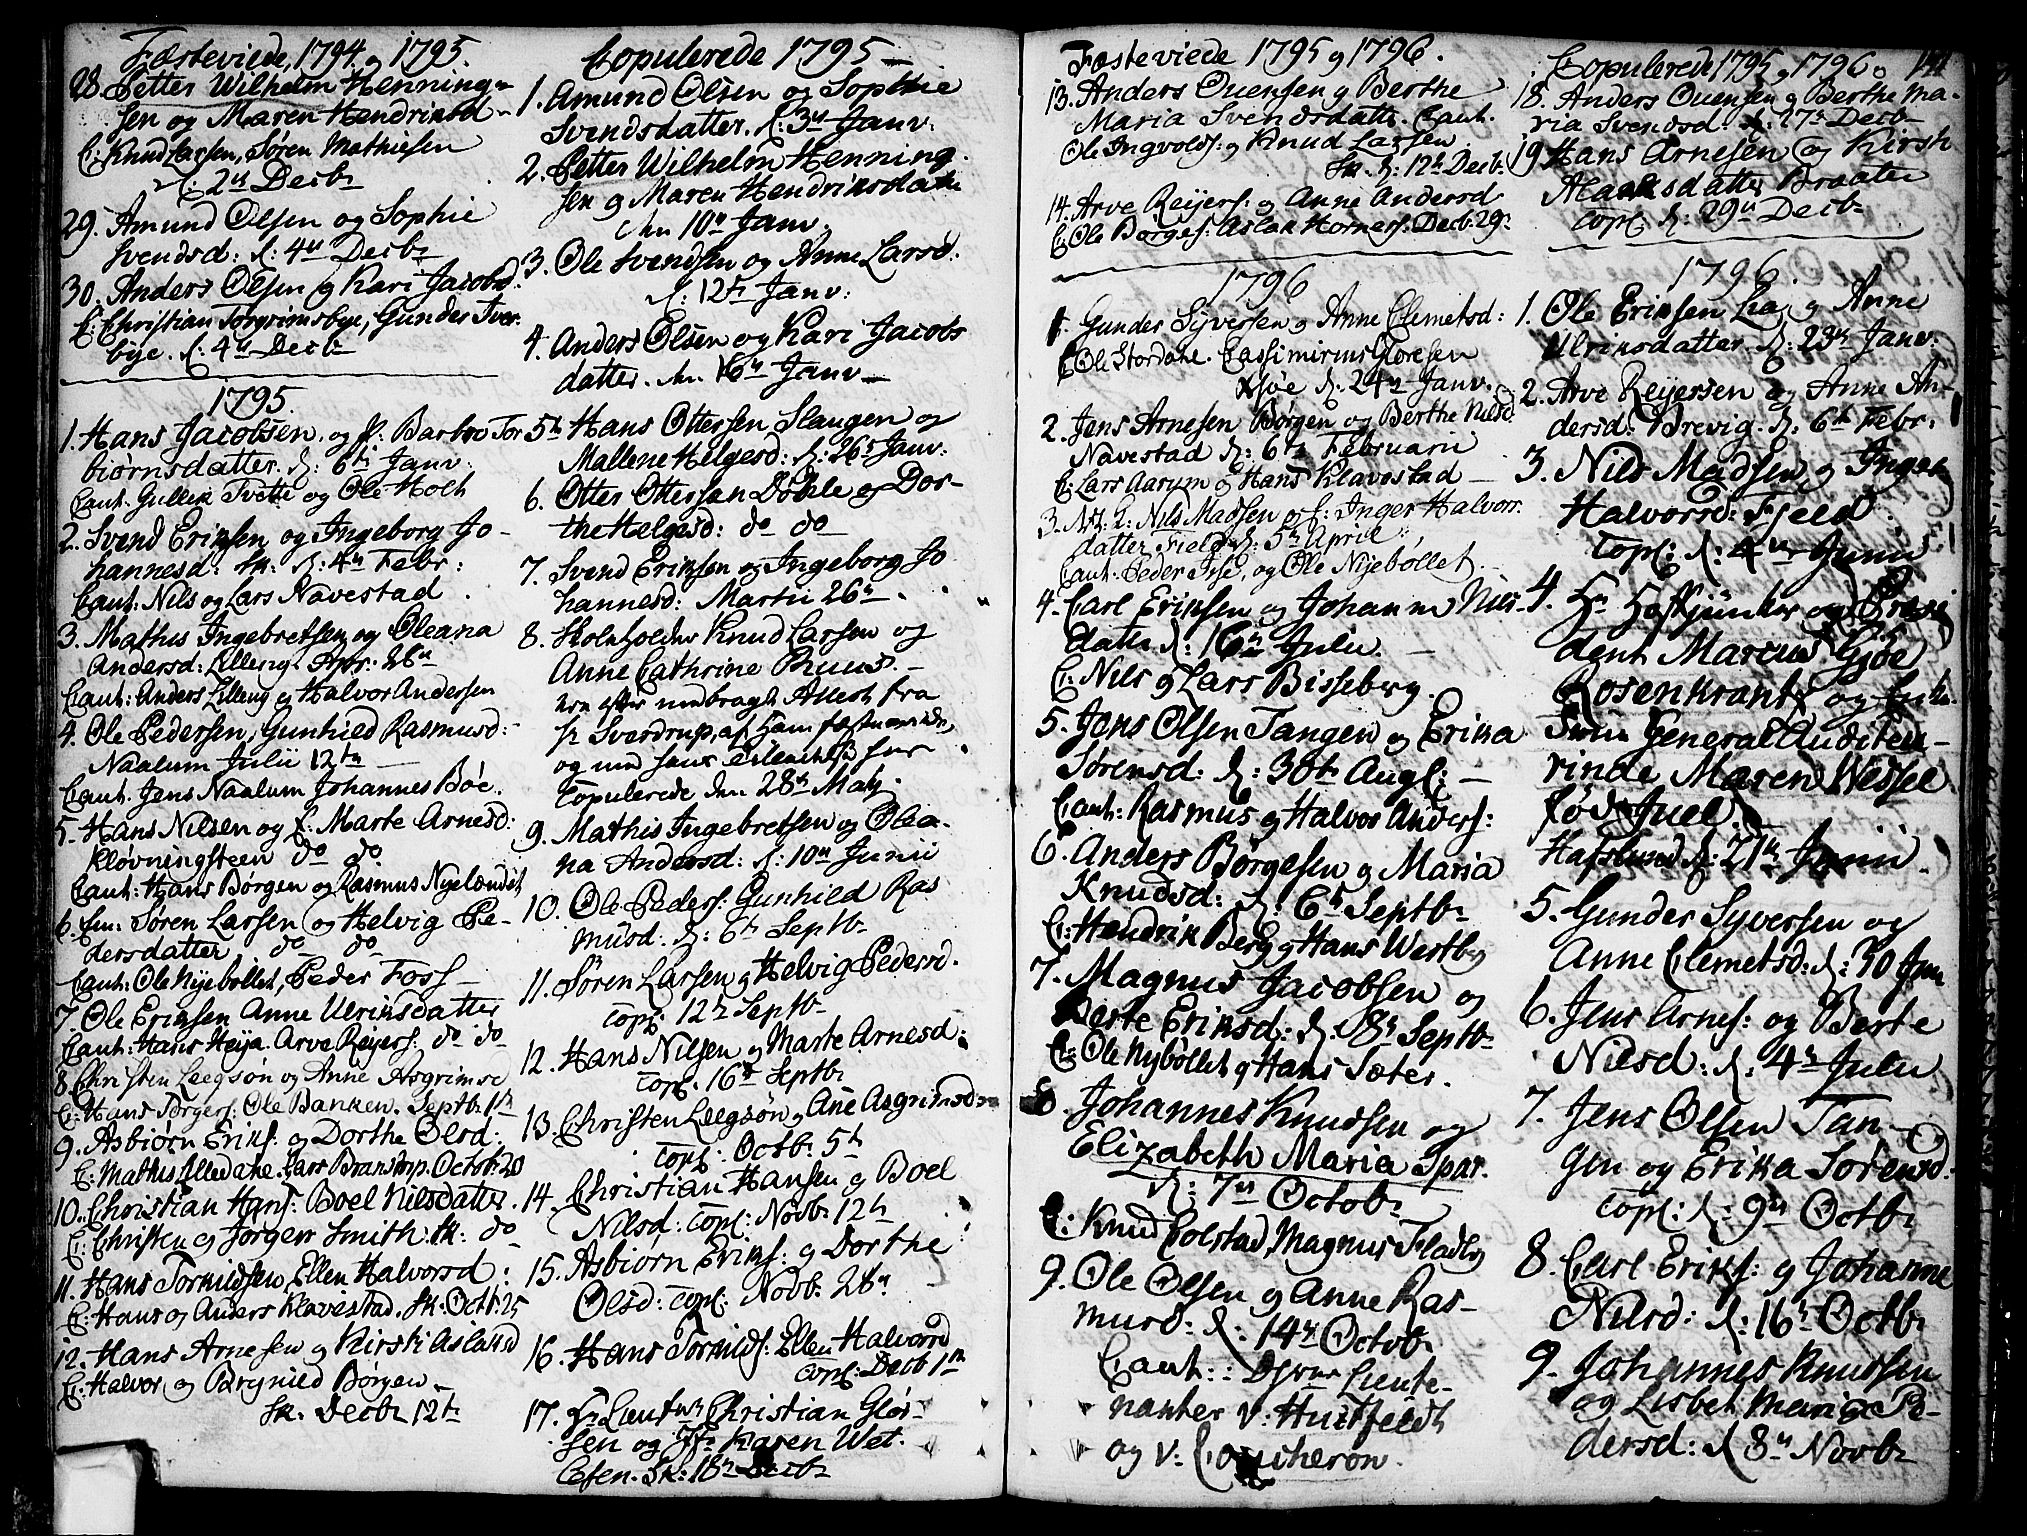 Fæsteviede, 1794 og 1795.
28. Petter Wilhelm Henning-
sen og Maren Hendriksd
C: Knud Larsen, Søren Mathiesen
d: 2den Decbr
29. Amund Olsen og Sophie
Svendsd: d: 4de Decbr
30. Anders Olsen og Kari Jacobsd.
C: Christian Torgrimsbye, Gunder Tver
bye. d: 4de Decbr
1795.
1. Hans Jacobsen og f: Barbro Tor
biørnsdatter. d: 6te Janv:
Caut: Gullek Tvette og Ole Holt
2. Svend Eriksen og Ingeborg Jo-
hannesd: d: 4de Febr:
Caut: Nils og Lars Navestad
3. Mathis Ingebretsen og Oleana
Andersd: Lilleng
Caut: Anders Lilleng og Halvor Andersen
4. Ole Pedersen, Gunhild Rasmusd:
Naalum Julii 12te
Caut. Jens Naalum Johannes Böe.
5. Hans Nilsen og f: Marte Arnesd:
Kløvningsteen do do
Caut: Hans Børgen og Rasmus Nyelændet
6. Søren Larsen og Helvig Pe-
dersdatter do do
Caut: Ole Nyebøllet, Peder Foss
7. Ole Eriksen Anne Ulriksdatter
Caut: Hans Heija. Arve Reijers: do do
8. Christen Leegsøn og Anne Asgrimsd
C: Hans Torgers: Ole Banken. Septbr 1ste
9. Asbiørn Eriks: og Dorthe Olsd:
C: Mathis Lilledahe. Lars Branstorp. Octobr: 20
10. Christian Hans: Boel Nilsdatter.
C: Christen og Jørgen Smith. do
11. Hans Tormidsen, Ellen Halvorsd:
C: Hans og Anders Klavestad. Octb: 25
12. Hans Arnesen og Kirsti Aslaksd
C: Halvor og Brynild Børgen
Decbr 12te
Copulerede 1795
1. Amund Olsen og Sophie
Svendsdatter. d: 3die Janv.
2. Petter Wilhelm Henning
sen og Maren Hendriksdatter
den 10de Janv.
3. Ole Svendsen og Anne Larsd.
d: 12te Janv:
4. Anders Olsen og Kari Jacobs
datter. den 16de Janv
5te Hans Ottersen Slaugen og
Mallene Helgesd: d: 26de Janv:
6. Otter Ottersen Döhle og Dor-
the Helgesd: do do
7. Svend Eriksen og Ingeborg Jo
hannesd: Martii 26de
8. Skoleholder Knud Larsen og
Anne Cathrine
efter medbragt Attest fra
Hr Sverdrup, af Ham
og med hans
Copulerede den 28de Maij
9. Mathis Ingebretsen og Olea-
na Andersd: d: 10de Junii
10. Ole Peders: Gunhild Ras
musd. d: 6te Septbr
11. Søren Larsen og Helvig Pedersd.
Copl: 12te Septbr
12. Hans Nilsen og Marte Arnesd:
Copl: 16de Septbr
13. Christen Leegsøn og Ane Asgrimsd:
Copl: Octbr: 5te
14. Christian Hansen og Boel
Nilsd: Copl: Novbr 12te
15. Asbiørn Eriks: og Dorthe
Olsd: Copl: Novb: 28de
16. Hans Tormids: Ellen Halvorsd
Copl: Decb 1ste
17. Hr Lieutnt: Christian Glør-
sen og Jfr Karen Wet-
lesen. 18de Decbr
Fæsteviede 1795 og 1796.
13. Anders Ouensen og Berthe
Maria Svendsdatter. Caut.
Ole Ingvolds: og Knud Larsen
d: 12te Decb:
14. Arve Reijers: og Anne Andersd
C: Ole Børges: Aslak Hornes: Decb: 29de
1796
1. Gunder Syversen og Anne Clemetsd:
C: Ole Stordahe. Cassimirus Gloresen
d: 24de Janv.
2. Jens Arnesen Børgen og Berthe Nilsd
Navestad d: 6te Februarii
C: Lars Aarum og Hans Klavestad
3. Nils Madsen og f: Inger Halvors
datter Field d: 5te April
Caut: Peder og Ole Nyebøllet
4. Carl Eriksen og Johanne Nils-
datter d: 16de Julii
C: Nils og Lars Bisseberg.
5. Jens Olsen Tangen og Erika
Sørensd: d: 30te Aug:
Caut: Rasmus og Halvor Anders:
6. Anders Børgesen og Maria
Knudsd: d: 6te Septbr
C: Hendrik Berg og Hans Westby
7. Magnus Jacobsen og
Berte Eriksd: d: 8de Septbr
C: Ole Nybøllet og Hans Sæter.
8. Johannes Knudsen og
Elizabeth Maria
d: 7de Octobr
C: Knud Colstad, Magnus Fladby
9. Ole Olsen og Anne Ras-
musd: d: 14de Octobr
Caut: Dhrr Lieute-
nanter v: Huitfeldt
og v: Coucheron.
Copulerede 1795 og 1796.
18. Anders Ouensen og Berthe Ma-
ria Svendsd: d: 27de Decbr
19 Hans Arnesen og Kirsti
Alaksdatter Braaten
Copl: d: 29de Decbr
1796.
1. Ole Eriksen Lia og Anne
Ulriksdatter d: 23de Janv:
2. Arve Reijersen og Anne An-
dersd: Brevig. d: 6te Febr:
3. Nils Madsen og Inger
Halvorsd: Fjeld
Copl: d: 4de Junii
4. Hr Hoffjunker og Præsi
dent Marcus Gjøe
Rosenkrantz og Enke
Frue General Auditeu-
rinde Maren Wessel
fød Juel.
Hafslund d: 21de Junii.
5. Gunder Syversen og
Anne Clemetsd: d: 30 Juni
6. Jens Arnes: og Berte
Nilsd: d. 4de Julii
7. Jens Olsen Tan-
gen og Erika Sørensd.
Copl: d: 9de Octbr
8. Carl Eriks: og Johanne
Nilsd: d: 16de Octbr
9. Johannes Knudsen
og Lisbet Maria Pe-
dersd: d 8de Novbr